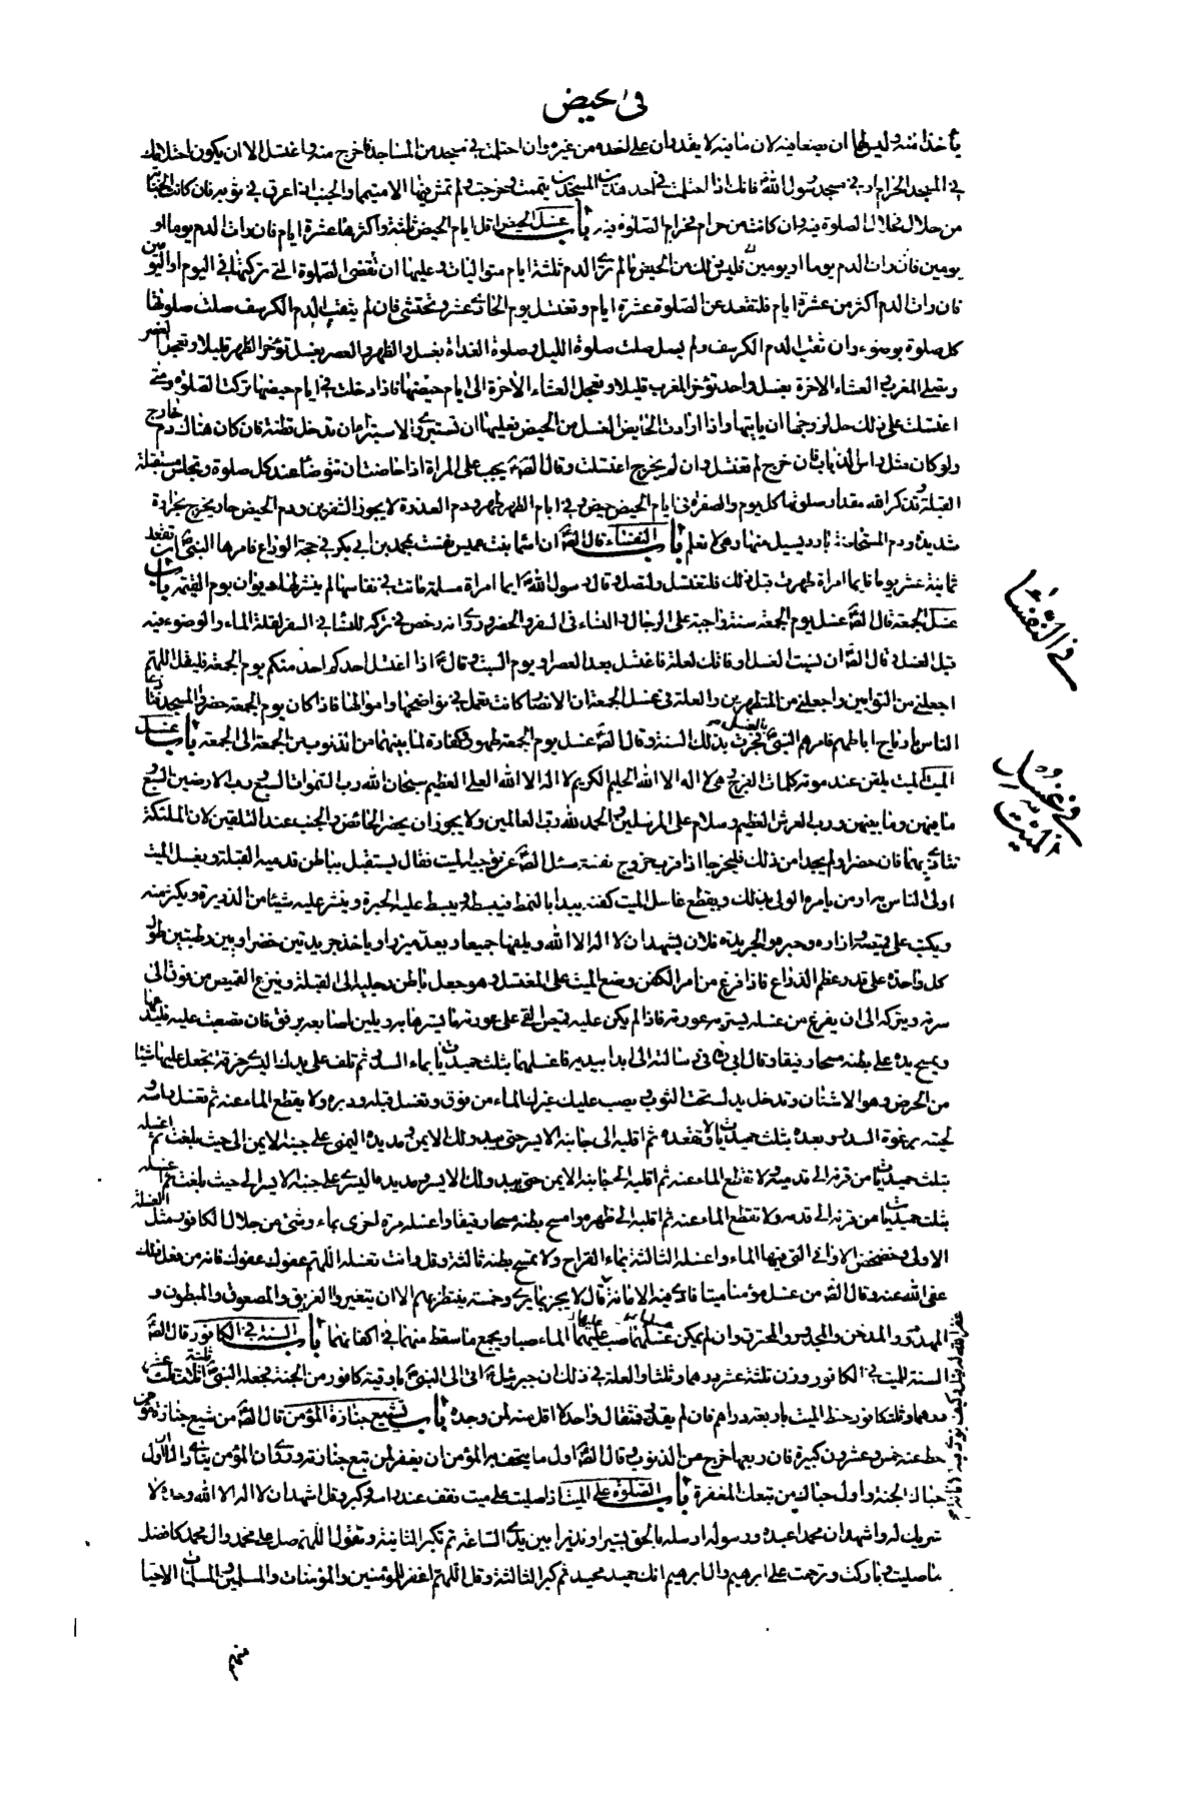 في الحيض
يأخذا منه وليس لها ان يضعا فيه لان ما فيه لا يقدران على اخذه من غيره وان احتلمت في مسجد من المساجد فاخرج منه واغتسل الا ان يكون احتلامك
في المسجد الحرام او في مسجد رسول الله فانك اذا احتلمت في احد هذين المسجدين تيممت وخرجت ولم تمش فيهما الا متيمما والجنب اذا عرق في ثوبه فان كانت الجنابة
من حلال فحلال الصلوة فيه وان كانت من حرام فحرام الصلوة فيه باب غسل الحيض اقل ايام الحيض ثلثة واكثرها عشرة ايام فان رات الدم يوما او
يومين فان رات الدم يوما او يومين فليس ذلك من الحيض ما لم تر الدم ثلثة ايام متواليات وعليها ان تقضى الصلوة التي تركتها في اليوم او اليومين
فان رات الدم اكثر من عشرة ايام فلتقعد عن الصلوة عشرة ايام وتغتسل يوم الحادي عشر وتحتشي فان لم يثقب الدم الكرسف صلت صلوتها
كل صلوة بوضوء وان ثقب الدم الكرسف ولم يسل صلت صلوة الليل وصلوة الغداة بغسل والظهر والعصر بغسل تؤخر الظهر قليلا وتعجل العصر
وتصلى المغرب والعشاء الاخرة بغسل واحد تؤخر المغرب قليلا وتعجل العشاء الاخرة الى ايام حيضها فاذا دخلت في ايام حيضها تركت الصلوة ومتى
اغتسلت على ذلك حل لزوجها ان ياتيها واذا ارادت الحايض الغسل من الحيض فعليها ان تستبرئ والاستبراء ان تدخل قطنة فان كان هناك دم خارج
ولو كان مثل راس الذباب فان خرج لم تغتسل وان لم يخرج اغتسلت وقال الص يجب على المراة اذا حاضت ان تتوضأ عند كل صلوة وتجلس مستقبلة
القبلة وتذكر الله مقدار صلوتها كل يوم والصفرة في ايام الحيض حيض وفي ايام الطهر طهر ودم العذرة لا يجوز الشفرين ودم الحيض حار يخرج بحرارة
شديدة ودم المستحاضة بارد يسيل منها وهي لا تعلم باب النفساء قال الص ان اسماء بنت عميس نفست بمحمد بن ابي بكر في حجة الوداع فامرها النبي ان تقعد
ثمانية عشر يوما فايما امراة طهرت قبل ذلك فلتغتسل ولتصل وقال رسول الله ايما امراة مسلمة ماتت في نفاسها لم ينشر لها ديوان يوم القيمة باب
غسل الجمعة قال الص غسل يوم الجمعة سنة واجبة على الرجال والنساء في السفر والحضر وروى انه رخص في تركه للنساء في السفر لقلة الماء والوضوء فيه
قبل الغسل وقال الص ان نسيت الغسل او فاتك لعلة فاغتسل بعد العصر او يوم السبت وقال اذا اغتسل احدكم يوم الجمعة فليقل اللهم
اجعلني من التوابين واجعلني من المتطهرين والعلة في غسل الجمعة ان الانصار كانت تعمل في نواضحها واموالها فاذا كان يوم الجمعة حضروا المسجد فتاذا
الناس بارياح اباطهم فامرهم النبي بالغسل فجرت بذلك السنة وقال الص غسل يوم الجمعة طهور وكفارة لما بينهما من الذنوب من الجمعة الى الجمعة باب غسل
الميت الميت يلقن عند موته كلمات الفرج وهي لا اله الا الله الحليم الكريم لا اله الا الله العلي العظيم سبحان الله رب السموات السبع ورب الارضين السبع
وما فيهن وما بينهن ورب العرش العظيم وسلام على المرسلين والحمد لله رب العالمين ولا يجوز ان يحضر الحائض والجنب عند التلقين لان الملئكة
تتاذى بهما فان حضرا ولم يجدا من ذلك فليخرجا اذا قرب خروج نفسه سئل الص عن توجيه الميت فقال يستقبل بباطن قدميه القبلة ويغسل الميت
اولى الناس به او من يامره الولى بذلك ويقطع غاسل الميت كفنه يبدا بالنمط فيبسطه ويبسط عليه الحبرة وينثر عليه شيئا من الذريرة ويكثر منه
ويكتب على قميصه وازاره وحبره والجريدة فلان يشهد ان لا اله الا الله ويلفها جميعا ويعد ميزرا وياخذ جريدتين خضراوين رطبتين طول
كل واحدة على قدر عظم الذراع فاذا فرغ من امر الكفن وضع الميت على المغتسل وهو جعل باطن رجليه الى القبلة وينزع القميص من فوق الى
سرته ويتركه الى ان يفرغ من غسله ليستر به عورته فاذا لم يكن عليه قميص القى على عورته ما يسترها به ويلين اصابعه برفق فان تصعبت عليه فليدعها
ويمسح يده على بطنه مسحا رفيقا وقال ابي ره في رسالته الى ابدا بيديه فاغسلهما بثلث حميديات بماء السدر ثم تلف على يدك اليسرى خرقة تجعل عليها شيئا
من الحرض وهو الاشنان وتدخل يدك تحت الثوب ويصب عليك غيرك الماء من فوق وتغسل قبله ودبره ولا يقطع الماء عنه ثم تغسل راسه
ولحيته برغوة السدر وبعده بثلث حميديات ولا تقعده ثم اقلبه الى جانبه الايسر حتى يبدو لك الايمن ومد يده اليمنى على جنبه الايمن الى حيث بلغت ثم اغسله
بثلث حميديات من قرنه الى قدميه ولا تقطع الماء عنه ثم اقلبه الى جانبه الايمن حتى يبدو لك الايسر ومد يده اليسرى على جنبه الايسر الى حيث بلغت ثم اغسله
بثلث حميديات من قرنه الى قدمه ولا تقطع الماء عنه ثم اقلبه الى ظهره وامسح بطنه مسحا رفيقا واغسله مرة اخرى بماء وشئ من جلال الكافور مثل الغسلة
الاولى وخضخض الاواني التي فيها الماء واغسله الثالثة بماء القراح ولا تمسح بطنه ثالثة وقل وانت تغسله اللهم عفوك عفوك فانه من فعل ذلك
عفى الله عنه وقال الص من غسل مؤمنا ميتا فادى فيه الامانة قال لا يخبر بما يرى وخمسة ينتظر بهم الا ان يتغيروا الغريق والمصعوق والمبطون و
المهدوم والمدخن والمجدور والمحترق وان لم يمكن غسلهما صب عليهما الماء صبا ويجمع ما سقط منهما في اكفانهما باب السنة في الكافور قال الص
السنة للميت في الكافور وزن ثلثة عشر درهما وثلثا والعلة في ذلك ان جبرئيل اتى الى النبي باوقية كافور من الجنة فجعله النبي اثلاثا ثلث
درهما وثلث كافور حنط الميت باربعة دراهم فان لم يقدر فمثقال واحد لا اقل منه لمن وجده باب تشييع جنازة المؤمن قال الص من شيع جنازة مؤمن
حط عنه خمس وعشرون كبيرة فان ربعها خرج من الذنوب وقال الص اول ما يتحف به المؤمن ان يغفر لمن تبع جنازته وروى ان المؤمن ينادى الا ان اول
حباك الجنة واول حباء من تبعك المغفرة باب الصلوة على الميت اذا صليت على ميت فقف عند راسه وكبر وقل اشهد ان لا اله الا الله وحده لا
شريك له واشهد ان محمدا عبده ورسوله ارسله بالحق بشيرا ونذيرا بين يدي الساعة ثم تكبر الثانية وتقول اللهم صل على محمد وال محمد كافضل
ما صليت وباركت وترحمت على ابرهيم وال ابرهيم انك حميد مجيد ثم كبر الثالثة وقل اللهم اغفر للمؤمنين والمؤمنات والمسلمين والمسلمات الاحياء
منهم
في النفساء
في غسل
الميت